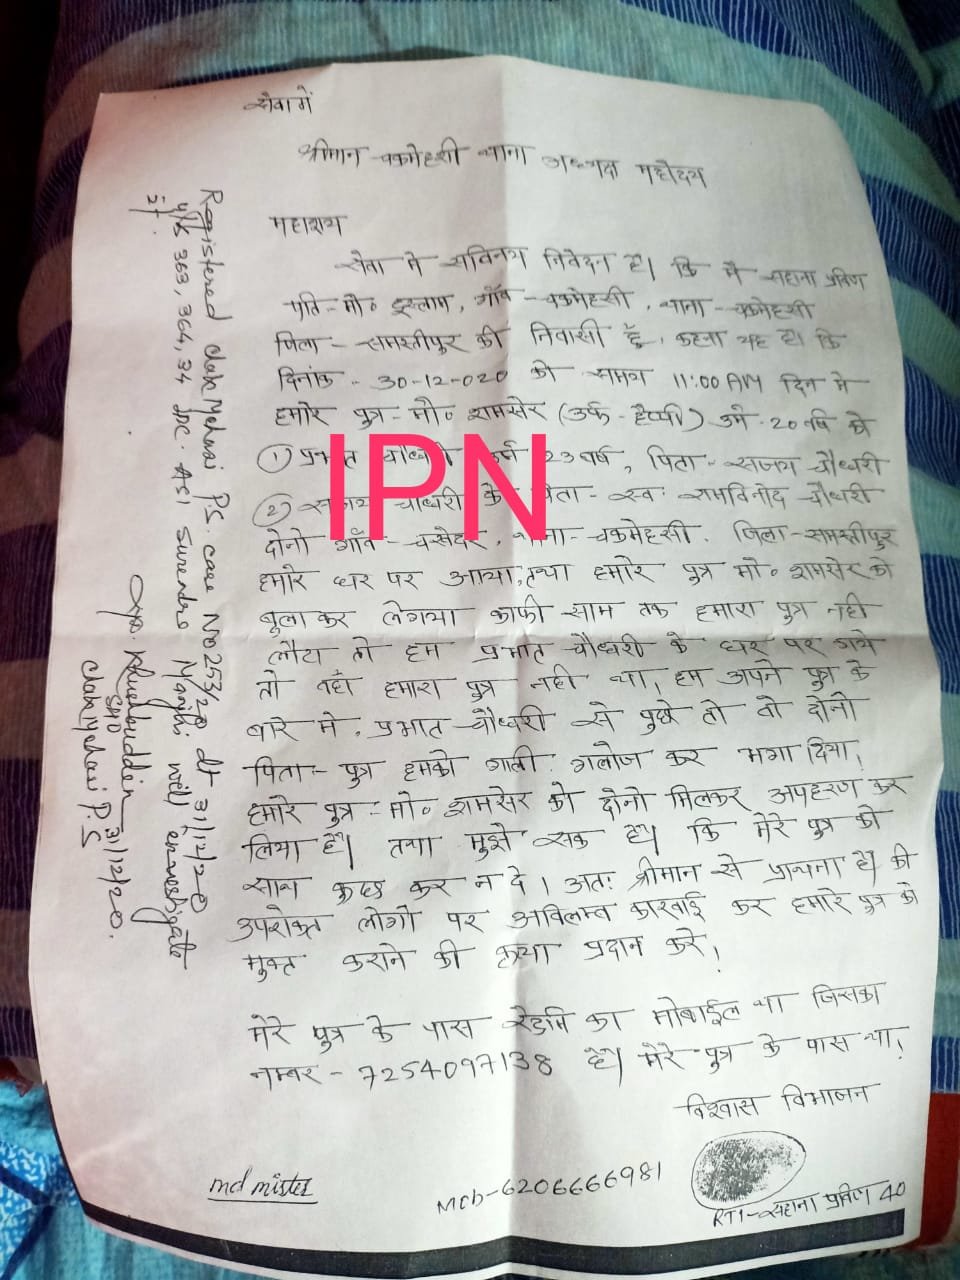 सेवा में
श्रीमान चकमेहसी थाना अध्यक्ष महोदय
महाशय
सेवा मे सविनय निवेदन है। कि मै सहाना प्रविण
पति - मो॰ इस्लाम, गाँव - चकमेहसी, थाना - चकमेहसी
जिला - समस्तीपुर की निवासी हूँ, कहना यह है। कि
दिनांक - 30-12-020 को समय 11:00 AM दिन मे
हमारे पुत्र - मो॰ शमसेर (उर्फ - हैप्पी) उम्र 20 वर्ष को
① प्रभात चौधरी उम्र 23 वर्ष, पिता - संजय चौधरी
② संजय चौधरी के पिता - स्वः रामविनोद चौधरी
दोनो गाँव - , थाना - चकमेहसी, जिला - समस्तीपुर
हमारे घर पर आया, तथा हमारे पुत्र मो॰ शमसेर को
बुलाकर लेगया काफी साम तक हमारा पुत्र नही
लौटा तो हम प्रभात चौधरी के घर पर गये
तो वहाँ हमारा पुत्र नही था, हम अपने पुत्र के
बारे मे, प्रभात चौधरी से पुछे तो वो दोनो
पिता - पुत्र हमको गाली गलोज कर भगा दिया,
हमारे पुत्र - मो॰ शमसेर को दोनो मिलकर अपहरण कर
लिया है। तथा मुझे सक है। कि मेरे पुत्र को
साथ कुछ कर न दे। अतः श्रीमान से प्राथना है। की
उपरोक्त लोगो पर अविलम्ब कारवाई कर हमारे पुत्र को
मुक्त कराने की कृपा प्रदान करे।
मेरे पुत्र के पास रेडमी का मोबाईल था जिसका
नम्बर - 7254097138 है। मेरे पुत्र के पास था,
विश्वास विभाजन
RTI - सहाना प्रविण 40
Mob - 6206666981
md mister
Registered Chakmehsi P.S. case No 253/20 dt 31/12/20
u/s 363, 364, 34 IPC. ASI Surendra Manjhi will investigate
it.
Khushbuddin 31/12/20.
SHO
Chakmehsi P.S
IPN